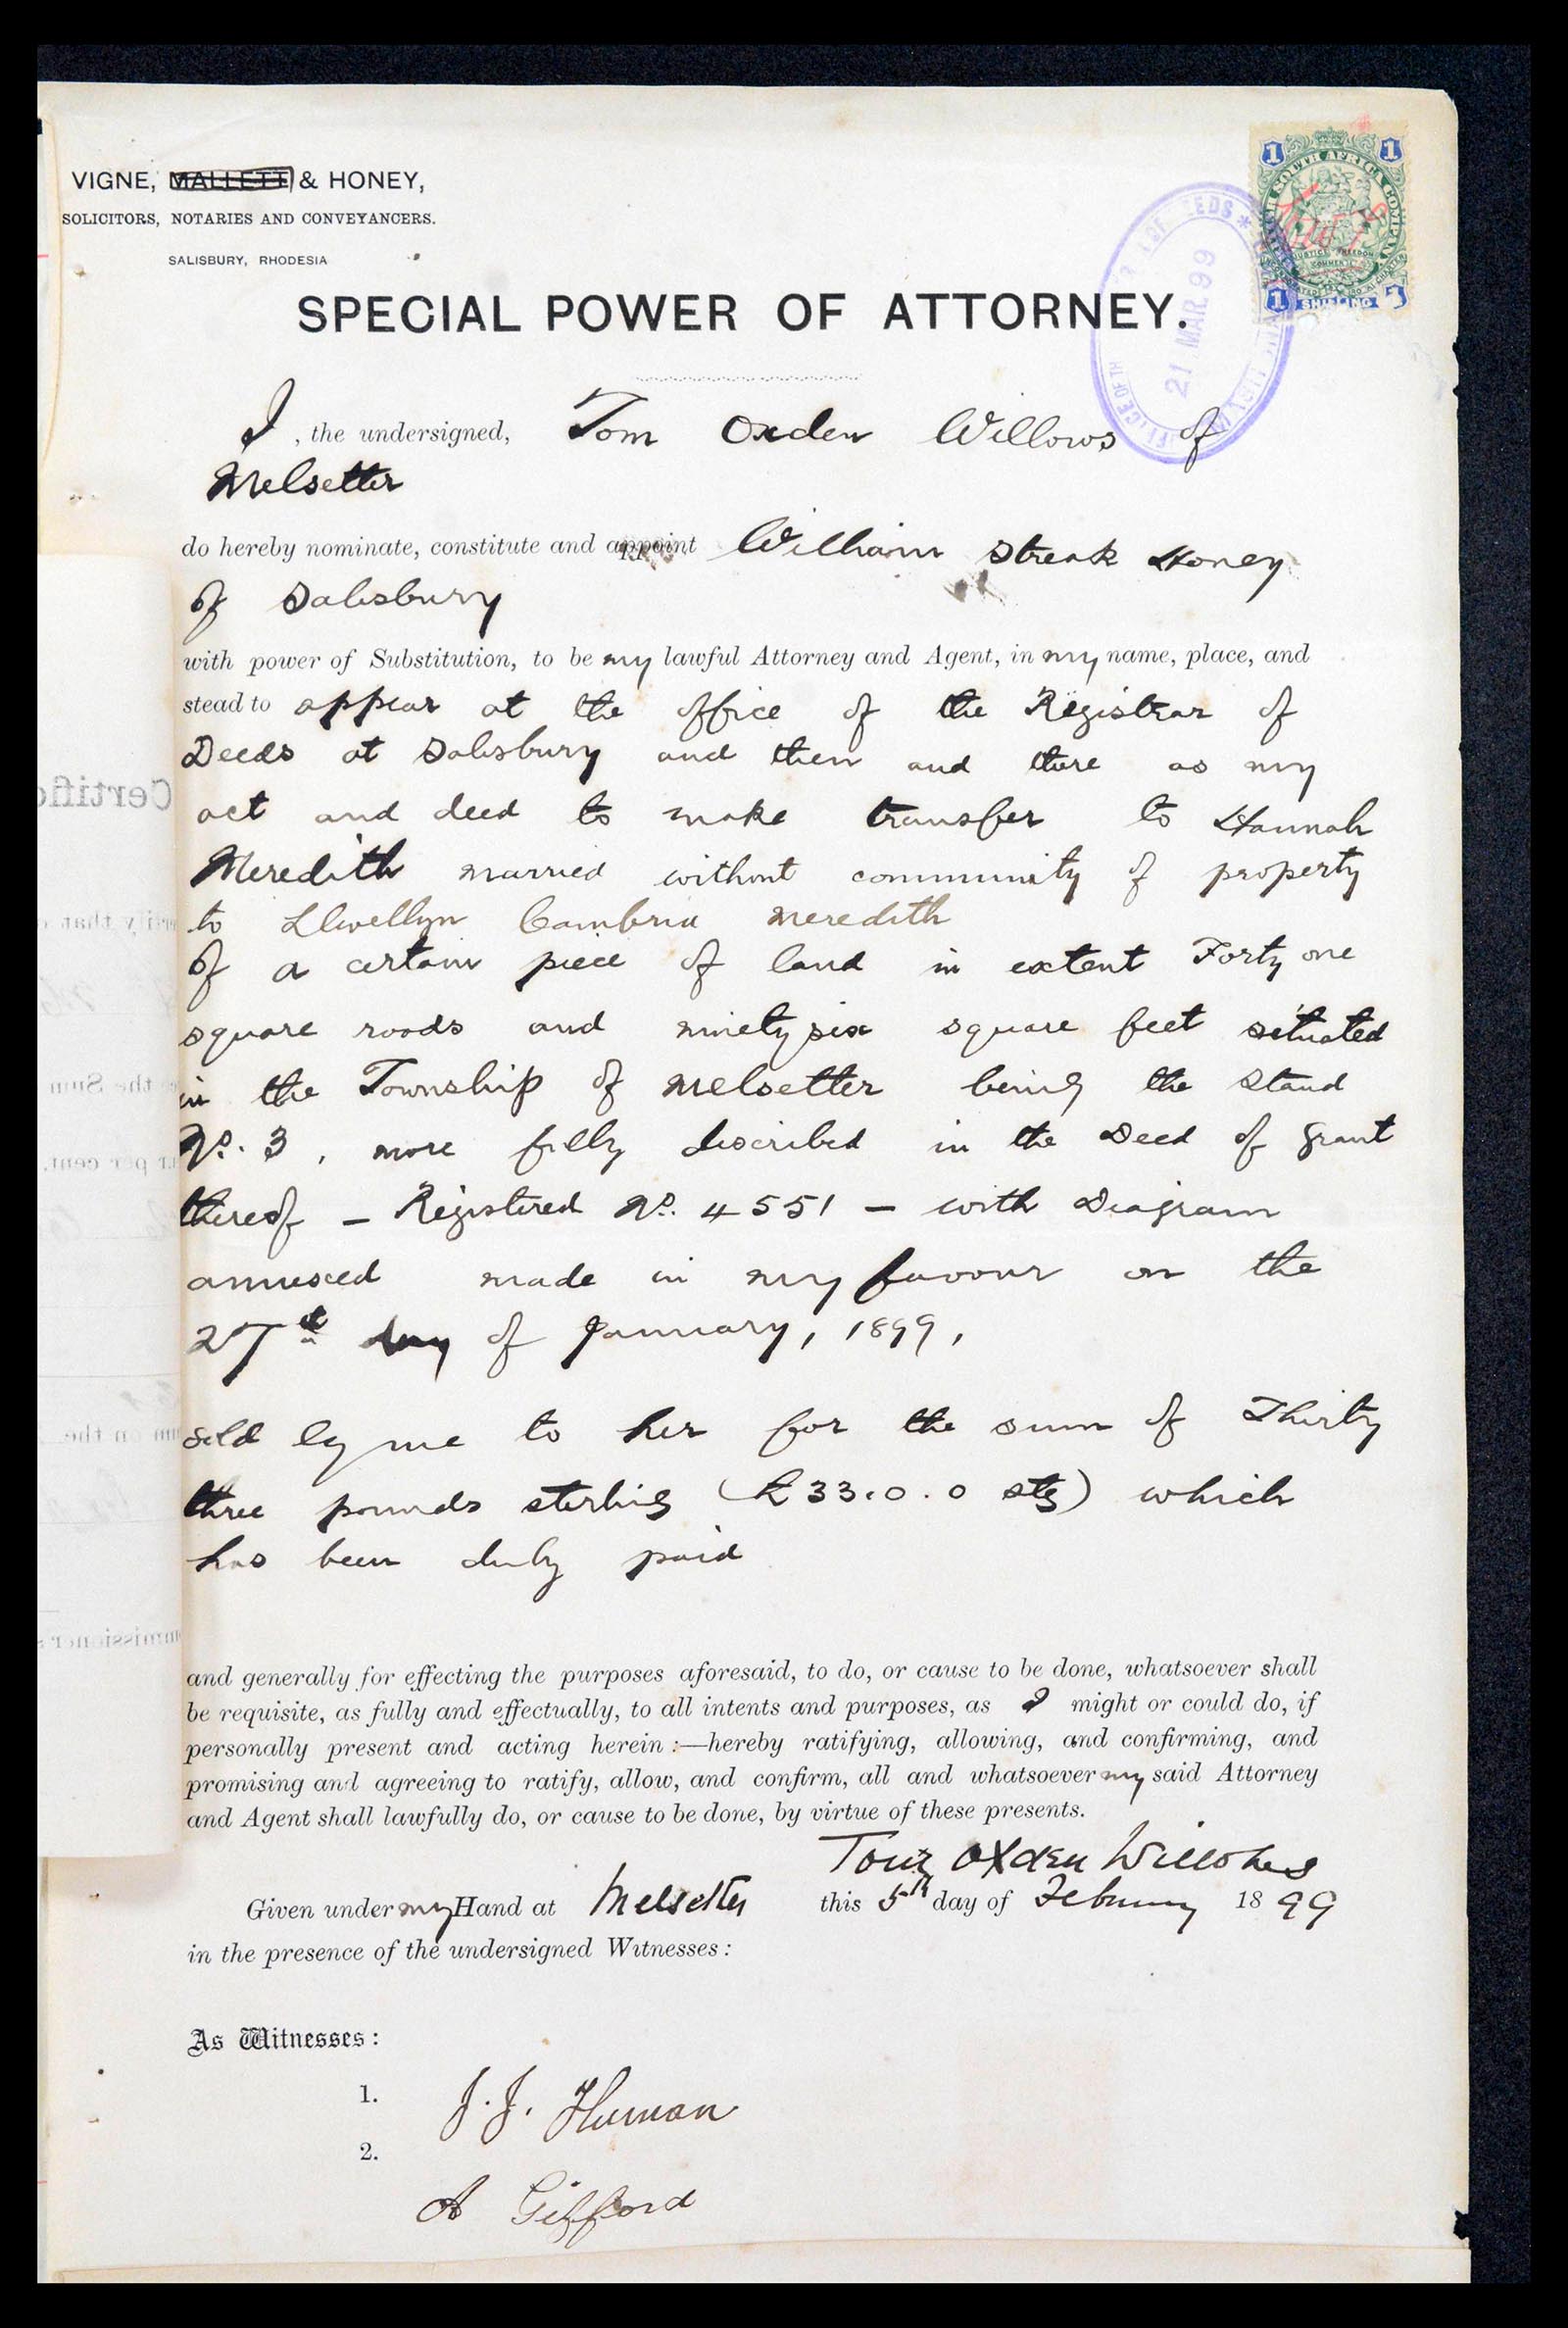 VIGNE, MALLETT & HONEY,
SOLICITORS, NOTARIES AND CONVEYANCERS.
SALISBURY, RHODESIA
1 1
SOUTH AFRICA COMPANY
JUSTICE FREEDOM
COMMERCE
1 SHILLING 1
OFFICE OF THE DEEDS *
21 MAR 99
SPECIAL POWER OF ATTORNEY.
I, the undersigned, Tom Oxden Willows of
Melsetter
do hereby nominate, constitute and appoint William Streak Honey
of Salisbury
with power of Substitution, to be my lawful Attorney and Agent, in my name, place, and
stead to appear at the office of the Registrar of
Deeds at Salisbury and then and there as my
act and deed to make transfer to Hannah
Meredith married without community of property
to Llwellyn Cambria Meredith
of a certain piece of land in extent Forty one
square roods and ninety six square feet situated
in the Township of Melsetter being the Stand
No. 3, more fully described in the Deed of Grant
thereof - Registered No. 4551 - with Diagram
annexed made in my favour on the
27th day of January, 1899,
sold by me to her for the sum of Thirty
three pounds sterling (£33.0.0 stg) which
has been duly paid
and generally for effecting the purposes aforesaid, to do, or cause to be done, whatsoever shall
be requisite, as fully and effectually, to all intents and purposes, as I might or could do, if
personally present and acting herein :—hereby ratifying, allowing, and confirming, and
promising and agreeing to ratify, allow, and confirm, all and whatsoever my said Attorney
and Agent shall lawfully do, or cause to be done, by virtue of these presents.
Tom Oxden Willows
Given under my Hand at Melsetter this 5th day of February 1899
in the presence of the undersigned Witnesses :
As Witnesses :
1. J. J. Human
2.
A Gifford